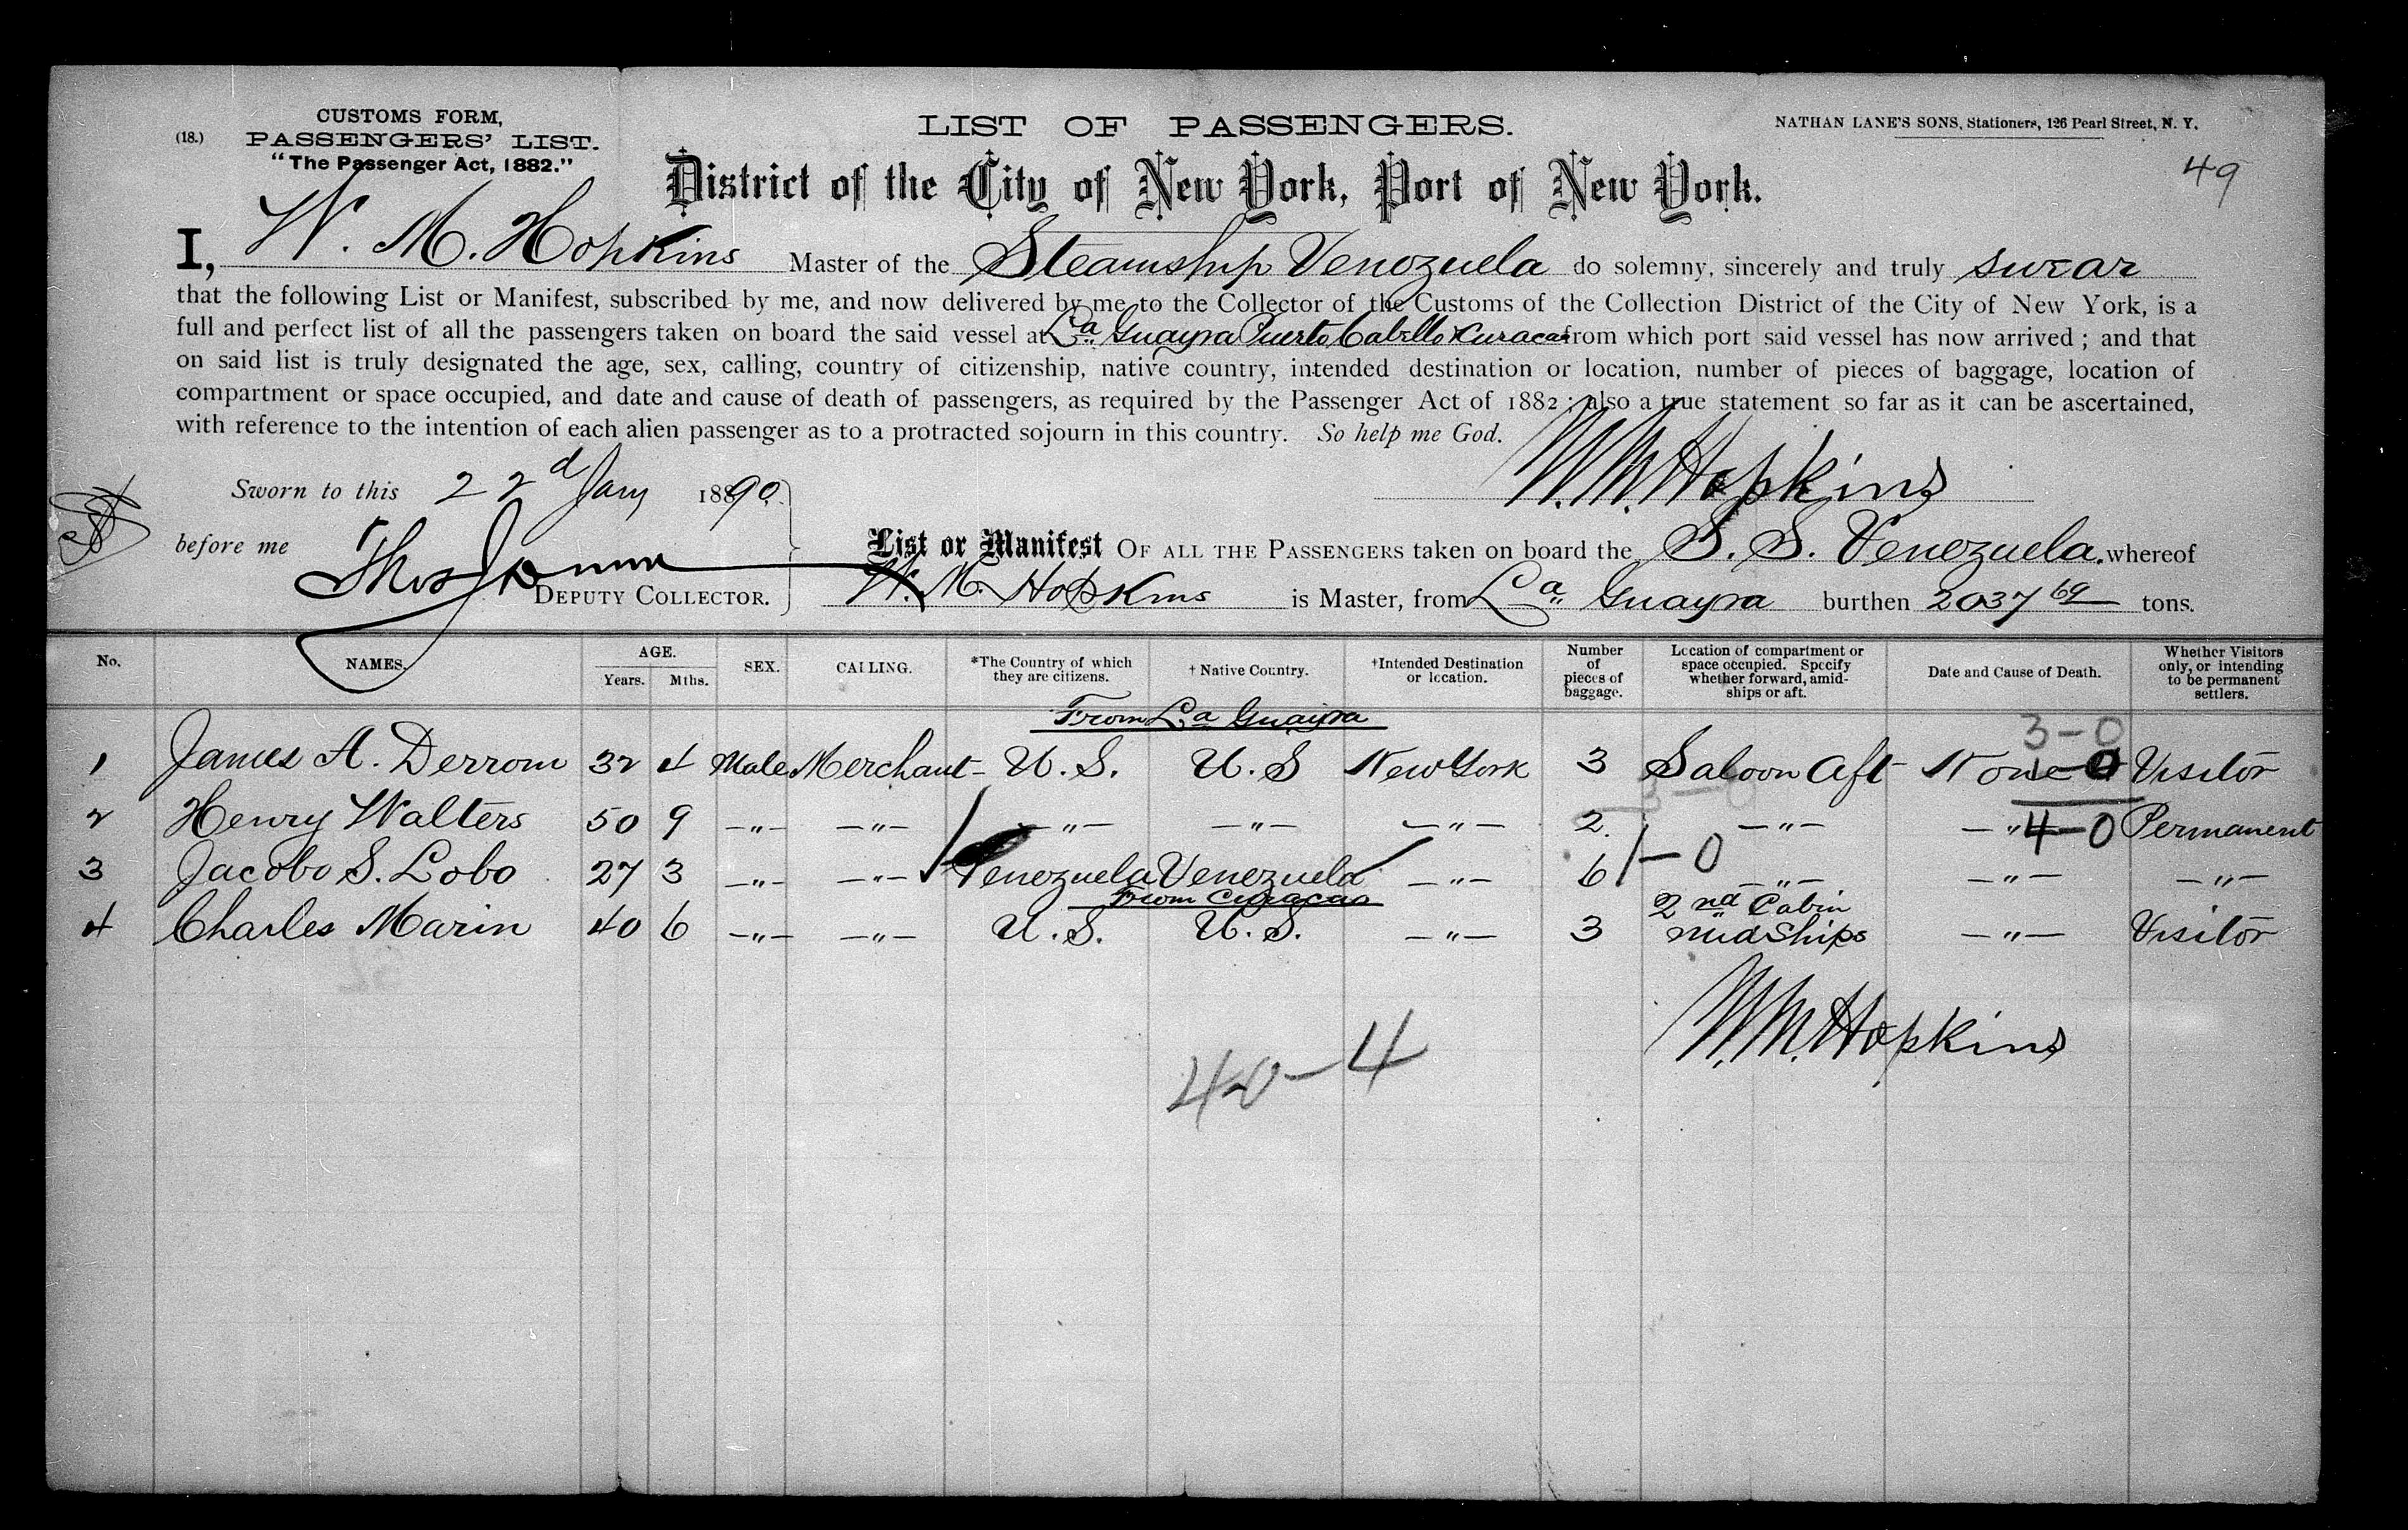 CUSTOMS FORM,
(18.) PASSENGERS' LIST.
"The Passenger Act, 1882."
LIST OF PASSENGERS.
NATHAN LANE'S SONS, Stationers, 126 Pearl Street, N. Y.
49
District of the City of New York, Port of New York.
I, W. M. Hopkins Master of the Steamship Venozuela do solemny, sincerely and truly swear
that the following List or Manifest, subscribed by me, and now delivered by me to the Collector of the Customs of the Collection District of the City of New York, is a
full and perfect list of all the passengers taken on board the said vessel at La Guayra Puerto Cabello & Curacao from which port said vessel has now arrived ; and that
on said list is truly designated the age, sex, calling, country of citizenship, native country, intended destination or location, number of pieces of baggage, location of
compartment or space occupied, and date and cause of death of passengers, as required by the Passenger Act of 1882 ; also a true statement so far as it can be ascertained,
with reference to the intention of each alien passenger as to a protracted sojourn in this country. So help me God.
W. M. Hopkins
Sworn to this 22d Jany 1890.
before me Thos
DEPUTY COLLECTOR.
List or Manifest OF ALL THE PASSENGERS taken on board the S. S. Venezuela. whereof
W. M. Hopkins is Master, from La Guayra burthen 2037 69 tons.
No. NAMES. AGE. Years. Mths. SEX. CALLING. *The Country of which they are citizens. † Native Country. †Intended Destination or location. Number of pieces of baggage. Location of compartment or space occupied. Specify whether forward, amidships or aft. Date and Cause of Death. Whether Visitors only, or intending to be permanent settlers.
From La Guayra
3-0
1 James A. Derrom 32 4 Male Merchant- U. S. U. S New York 3 Saloon Aft None Visitor
3-0
2 Henry Walters 50 9 -"- -"- -"- -"- -"- 2. -"- -"- 4-0 Permanent
3 Jacobo S. Lobo 27 3 -"- -"- Venezuela Venezuela -"- 6 1-0 -"- -"- -"-
From Curacao
4 Charles Marin 40 6 -"- -"- U. S. U. S. -"- 3 2nd Cabin midships -"- Visitor
W. M. Hopkins
40-4